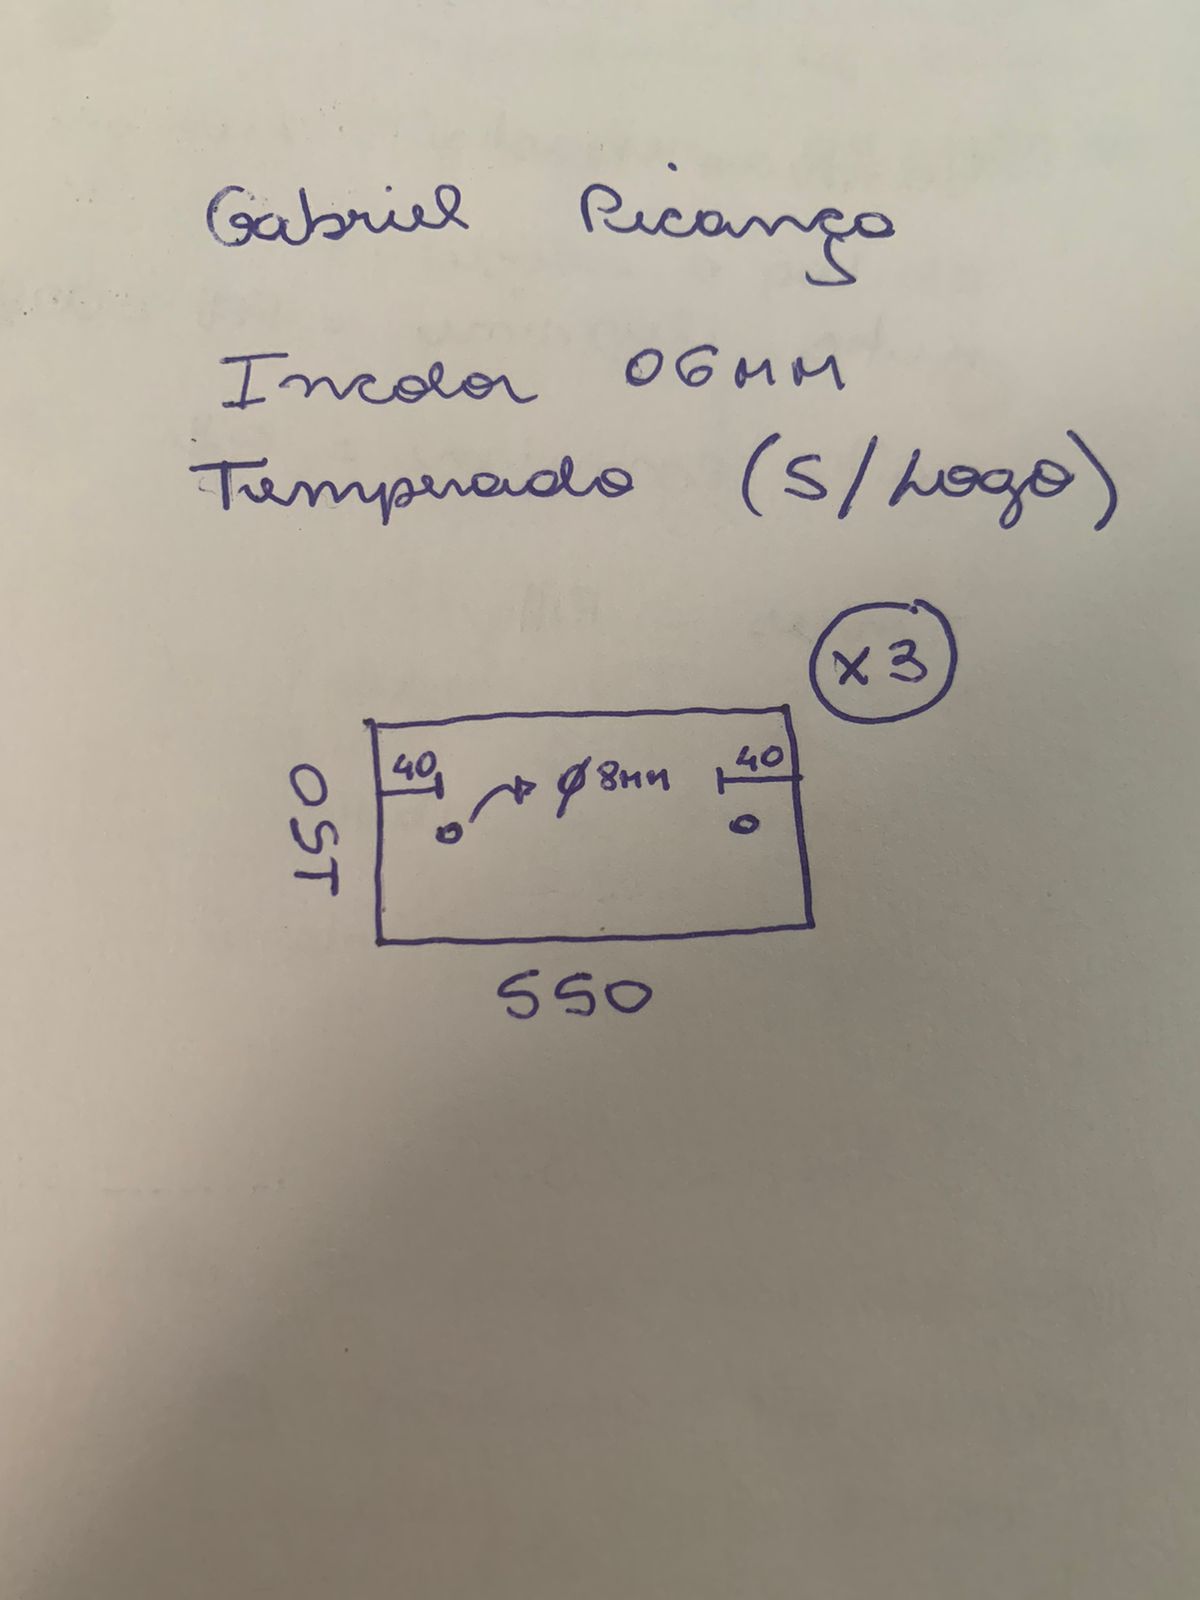 Gabriel Picanço
Incolor 06MM
Temperado (S/Logo)
x3
40
ø8mm
40
150
550